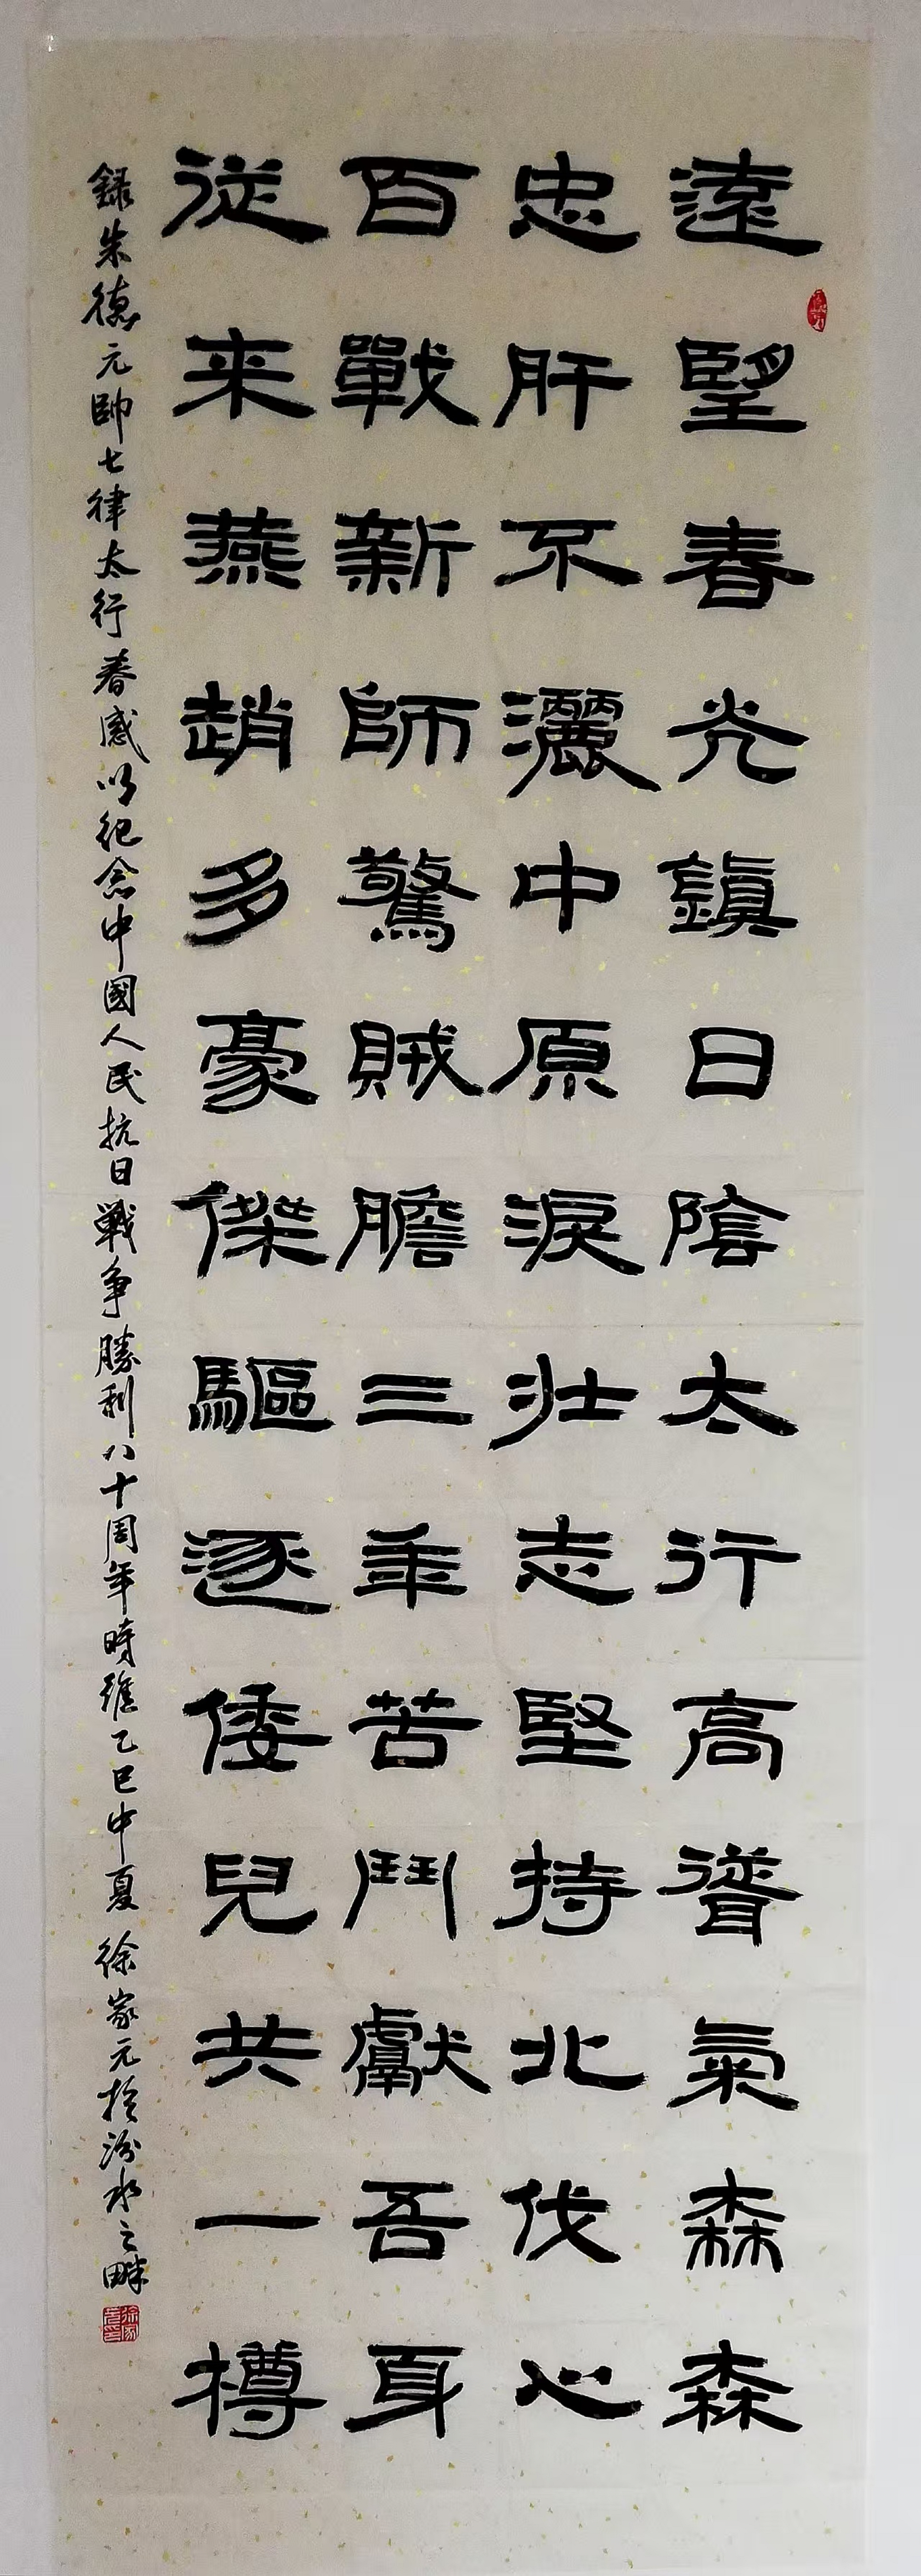 遠望春光鎮日陰太行高聳氣森森
忠肝不灑中原淚壯志堅持北伐心
百戰新師驚賊膽三年苦鬥獻吾身
從来燕趙多豪傑驅逐倭兒共一樽
録朱德元帥七律太行春感以纪念中國人民抗日戰争勝利八十周年時維乙巳中夏 徐家元於汾水之畔